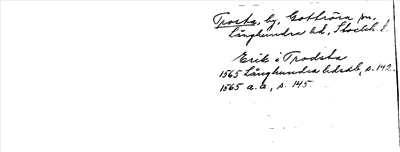 Trosta, by, Gottröra sn,
Långhundra hd, Stockh. l.
Erik i Trodsta
1565 Långhundra hdrdb, s. 142.
1565 a.a., s. 145.